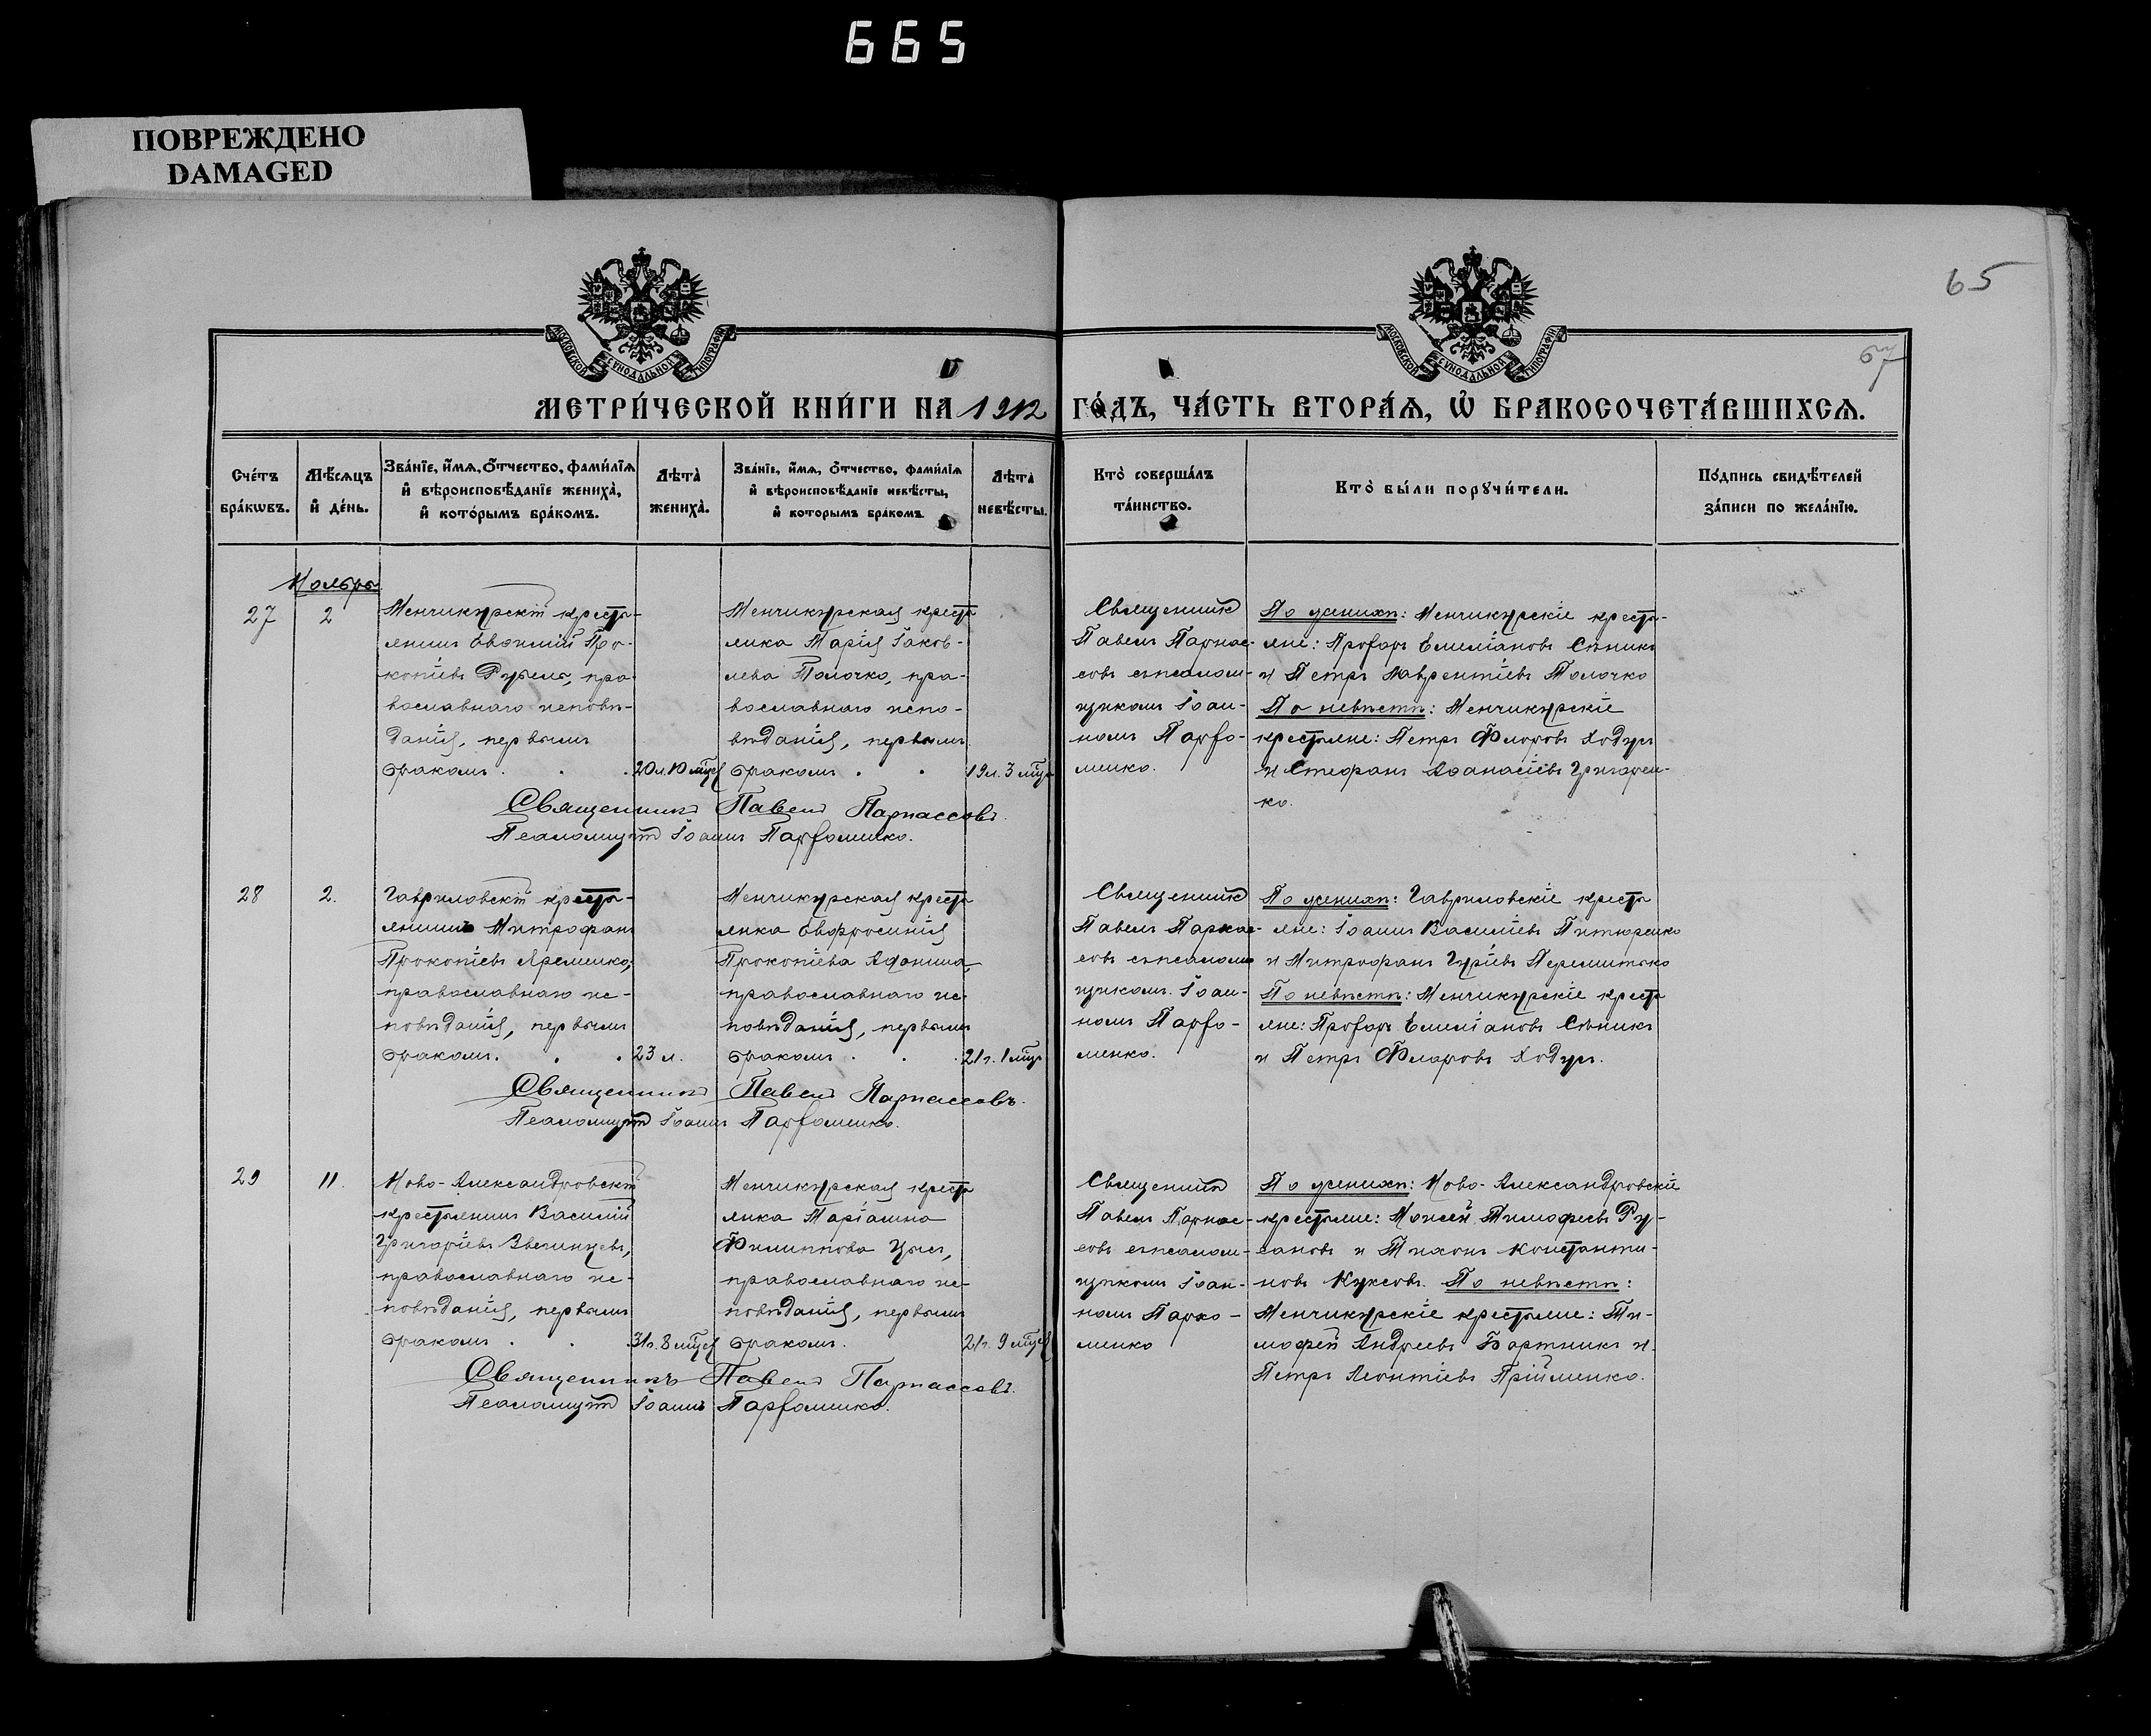 665
ПОВРЕЖДЕНО
DAMAGED
65
67
МОСКОВСКОЙ СУНОДАЛЬНОЙ ТИПОГРАФІИ
МОСКОВСКОЙ СУНОДАЛЬНОЙ ТИПОГРАФІИ
МЕТРИ́ЧЕСКОЙ КНИ́ГИ НА 1912 ГО́ДЪ, ЧА́СТЬ ВТОРА́Ѧ, Ѽ БРАКОСОЧЕТА́ВШИХСѦ.
Сче́тъ бра́кѡвъ.
Мѣ́сѧцъ и҆ де́нь.
Зва́нїе, и҆́мѧ, ѻ҆́тчество, фами́лїѧ
и҆ вѣроисповѣ́данїе жениха̀,
и҆ кото́рымъ бра́комъ.
Лѣ́та̀ жениха̀.
Зва́нїе, и҆́мѧ, ѻ҆́тчество, фами́лїѧ
и҆ вѣроисповѣ́данїе невѣ́сты,
и҆ которымъ бракомъ.
Лѣта̀ невѣ́сты.
Кто̀ соверша́лъ
та́инство.
Кто̀ бы́ли порꙋчи́тели.
По́дпись свидѣ́телей
за́писи по жела́нїю.
Ноябрь
27
2
Менчикурскій кресть-
янинъ Евѳимій Про-
копіевъ Рубель, пра-
вославнаго исповѣ-
данія, первымъ
бракомъ.
20 л. 10 мѣс
Менчикурская кресть
янка Марія Іаков-
лева Толочко, пра-
вославнаго испо-
вѣданія, первымъ
бракомъ.
19 л. 3 мѣс
Священникъ
Павелъ Парнас-
совъ съ псалом-
щикомъ Іоан-
номъ Парѳо-
менко.
По женихѣ: Менчикурскіе кресть-
яне: Прохоръ Емеліановъ Сѣникъ
и Петръ Лаврентіевъ Толочко
По невѣстѣ: Менчикурскіе
крестьяне: Петръ Флоровъ Ходусъ
и Стефанъ Аѳанасіевъ Григорен-
ко.
Священникъ Павелъ Парнассовъ
Псаломщикъ Іоаннъ Парѳоменко.
28
2.
Гавриловскій кресть-
янинъ Митрофанъ
Прокопіевъ Яременко,
православнаго ис-
повѣданія, первымъ
бракомъ.
23 л.
Менчикурская кресть
янка Евфросинія
Прокопіева Афонина,
православнаго ис-
повѣданія, первымъ
бракомъ.
21 г. 1 мѣс
Священникъ
Павелъ Парнас-
совъ съ псалом
щикомъ Іоан-
номъ Парѳо-
менко.
По женихѣ: Гавриловскіе кресть
яне: Іоаннъ Василіевъ Питюренко
и Митрофанъ Гуріевъ Перемитько
По невѣстѣ: Менчикурскіе кресть
яне: Прохоръ Емеліановъ Сѣникъ
и Петръ Флоровъ Ходусъ.
Священникъ Павелъ Парнассовъ.
Псаломщикъ Іоаннъ Парѳоменко.
29
11.
Ново-Александровскій
крестьянинъ Василій
Григоріевъ Звегинцевъ,
православнаго ис-
повѣданія, первымъ
бракомъ.
31 г. 8 мѣс
Менчикурская кресть
янка Маріанна
Филиппова Цысъ,
православнаго ис-
повѣданія, первымъ
бракомъ.
21 г. 9 мѣс
Священникъ
Павелъ Парнас-
совъ съ псалом-
щикомъ Іоан-
номъ Парѳо-
менко
По женихѣ: Ново-Александровскіе
крестьяне: Моисей Тимофеевъ Ру-
сановъ и Тихонъ Константи-
новъ Куксовъ. По невѣстѣ:
Менчикурскіе крестьяне: Ти-
мофей Андреевъ Бортникъ и
Петръ Леонтіевъ Прійменко.
Священникъ Павелъ Парнассовъ.
Псаломщикъ Іоаннъ Парѳоменко.